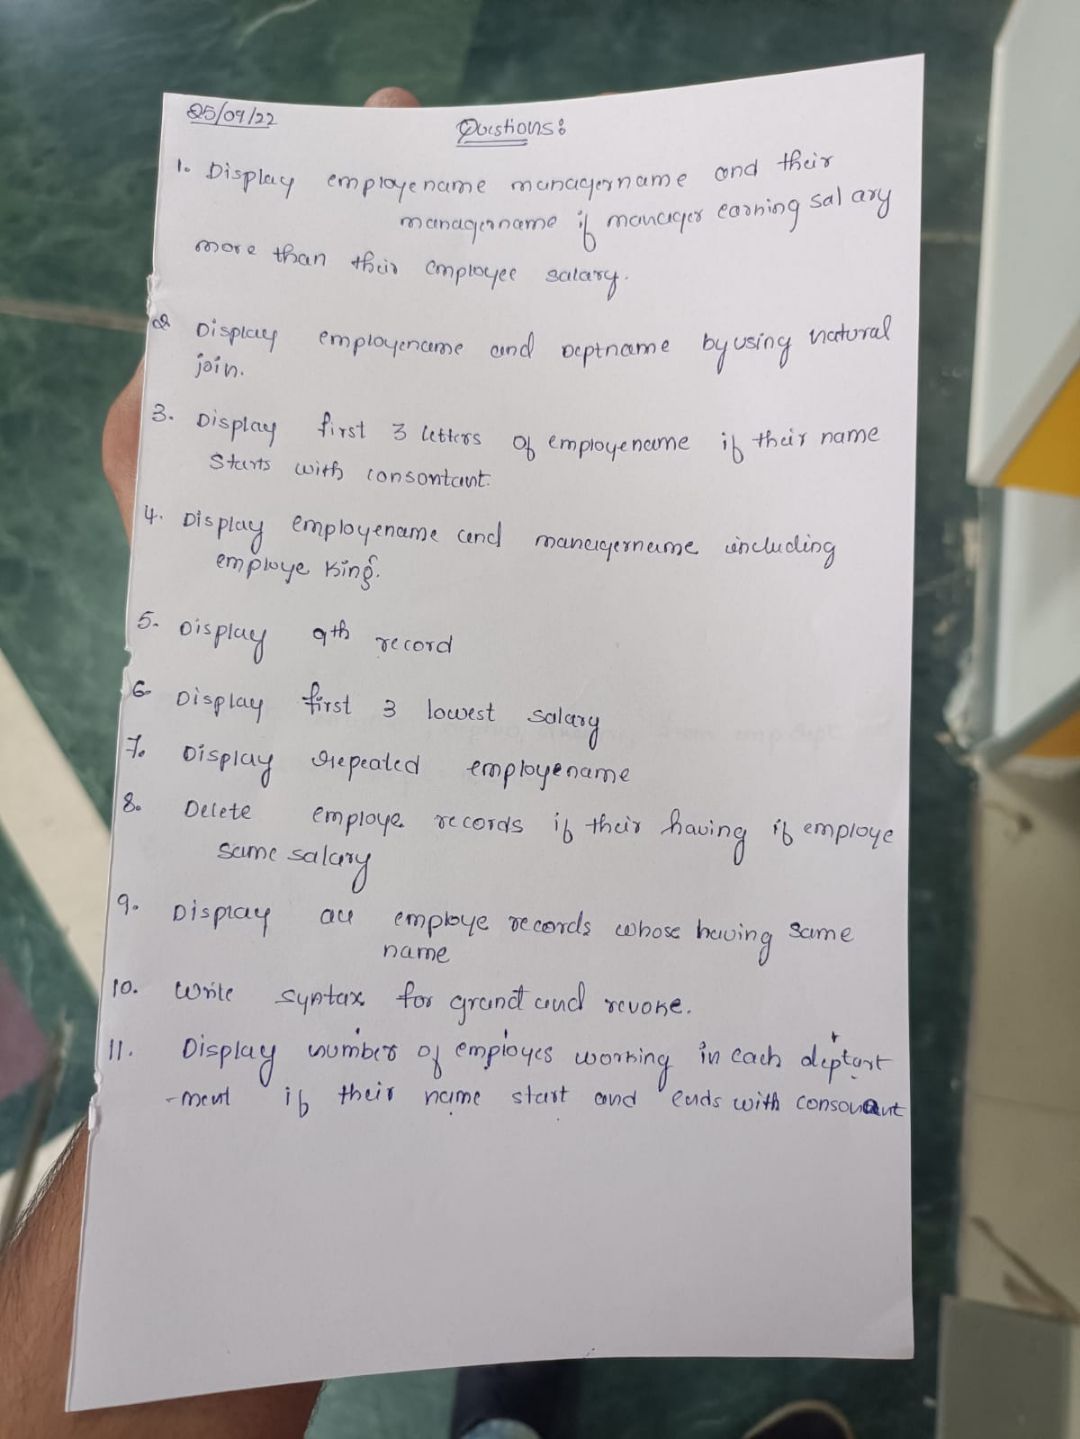 25/09/22
Questions:
1. Display employename managername and their
managername if manager earning salary
more than their employee salary.
2 Display employename and Deptname by using natural
join.
3. Display first 3 letters of employename if their name
starts with consontant.
4. Display employename and managername including
employe King.
5. Display 9th record
6 Display first 3 lowest salary
7. Display repeated employename
8. Delete employe records if their having if employe
same salary
9. Display all employe records whose having same
name
10. Write syntax for grand and revoke.
11. Display number of employes working in each deptart
-ment if their name start and ends with consonant